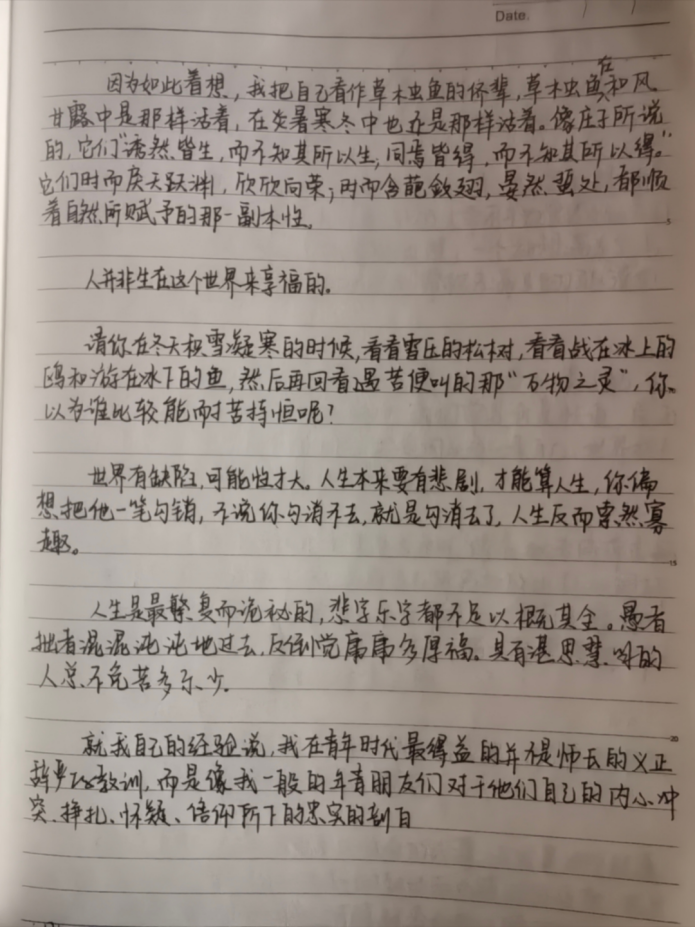 Date.
因为如此着想，我把自己看作草木虫鱼的侪辈，草木虫鱼在和风
甘露中是那样活着，在炎暑寒冬中也还是那样活着。像庄子所说
的，它们“诱然皆生，而不知其所以生；同焉皆得，而不知其所以得。”
它们时而戾天跃渊，欣欣向荣；时而含葩敛翅，晏然蛰处，都顺
着自然所赋予的那一副本性。
人并非生在这个世界来享福的。
请你在冬天积雪凝寒的时候，看看雪压的松树，看看战在冰上的
鸥和游在冰下的鱼，然后再回看遇苦便叫的那“万物之灵”，你
以为谁比较能耐苦持恒呢？
世界有缺陷，可能性才大。人生本来要有悲剧，才能算人生，你偏
想把他一笔勾销，不说你勾消不去，就是勾消去了，人生反而索然寡
趣。
人生是最繁复而诡秘的，悲字乐字都不足以概死其全。愚者
拙者混混沌沌地过去，反倒觉庸庸多厚福。具有湛思慧的
人总不免苦多乐少。
就我自己的经验说，我在青年时代最得益的并不是师长的义正
辞严的教训，而是像我一般的年青朋友们对于他们自己的内心冲
突、挣扎、怀疑、信仰所下的忠实的剖白